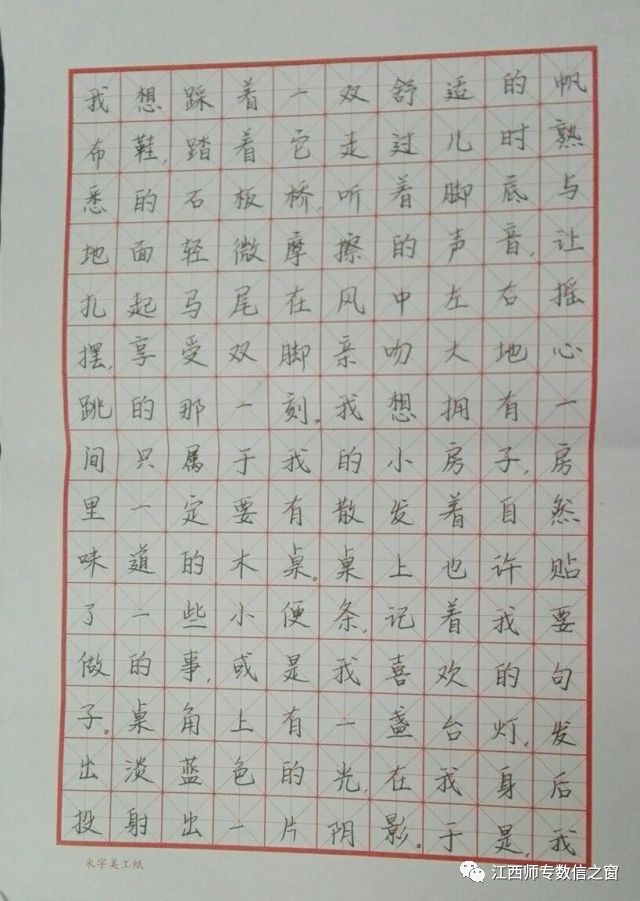 我想踩着一双舒适的帆
布鞋,踏着它走过儿时熟
悉的石板桥,听着脚底与
地面轻微摩擦的声音,让
扎起马尾在风中左右摇
摆,享受双脚亲吻大地心
跳的那一刻。我想拥有一
间只属于我的小房子,房
里一定要有散发着自然
味道的木桌。桌上也许贴
了一些小便条,记着我要
做的事,或是我喜欢的句
子。桌角上有一盏台灯,发
出淡蓝色的光,在我身后
投射出一片阴影。于是,我
米字美工纸
江西师专数信之窗